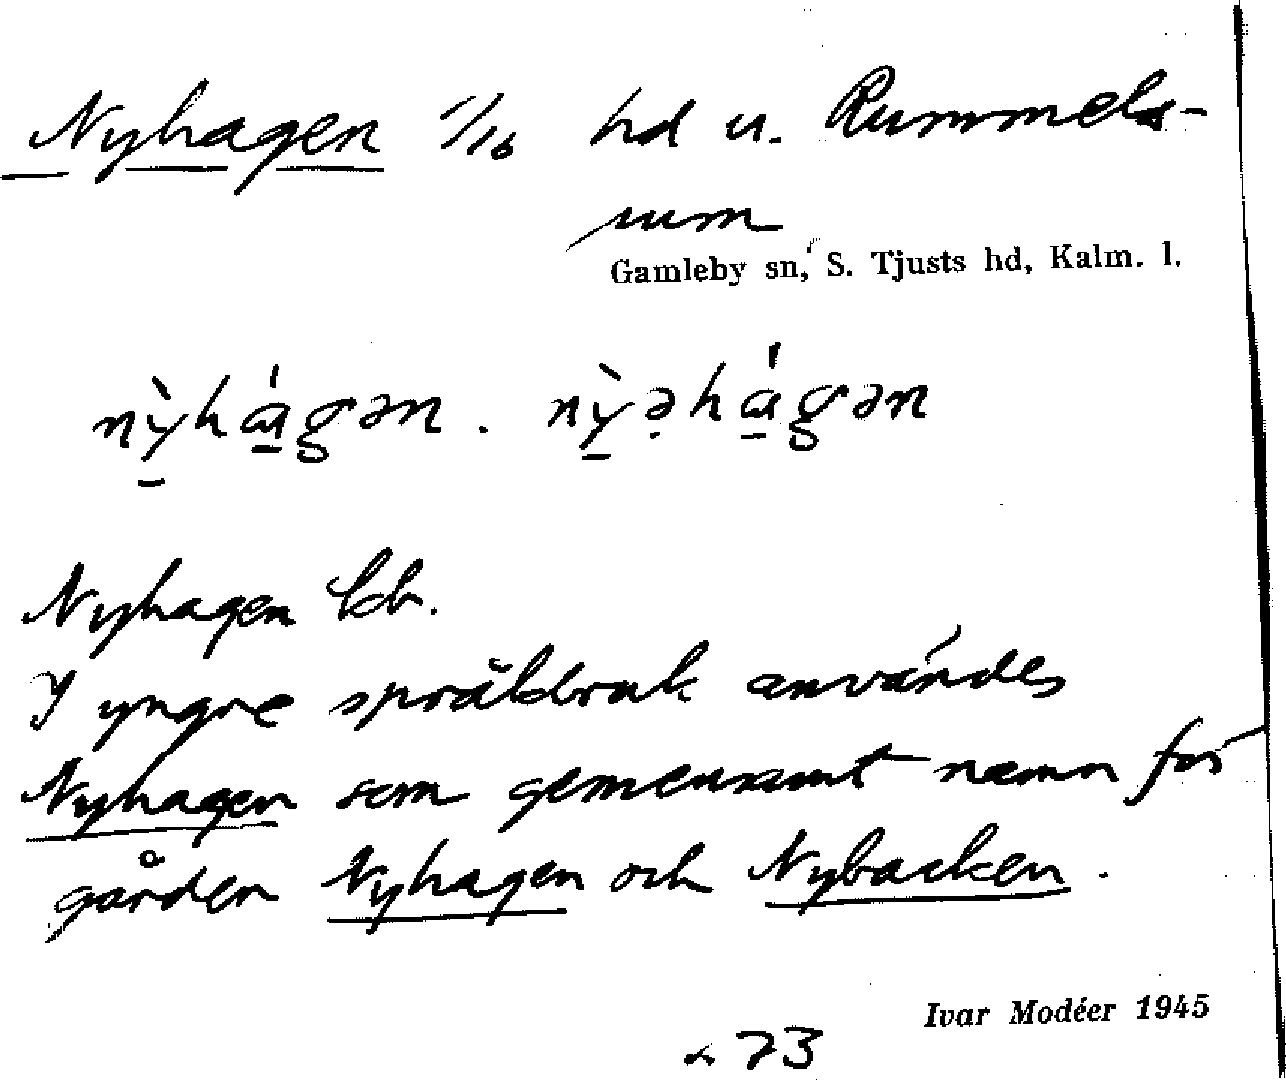 Nyhagen 1/16 hd u. Rummels-
rum
Gamleby sn, S. Tjusts hd, Kalm. l.
nỳhágən. nỳəhágən
Nyhagen kb.
I yngre språkbruk användes
Nyhagen som gemensamt namn för
gården Nyhagen och Nybacken.
Ivar Modéer 1945
73